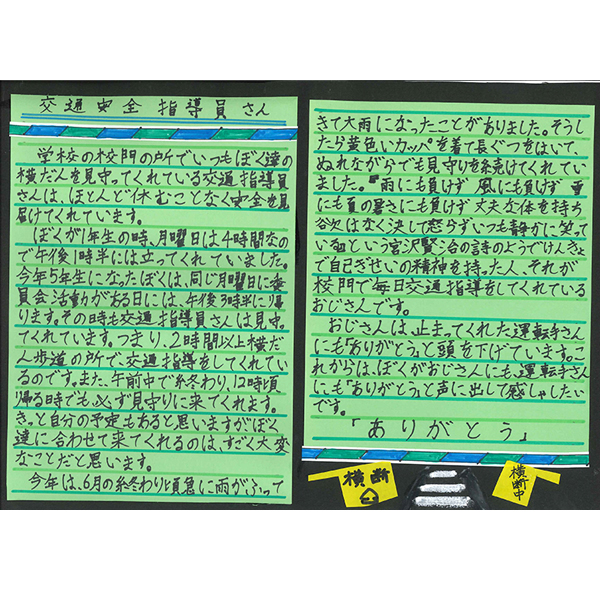 交通安全 指導員さん
学校の校門の所でいつもぼく達の
横だんを見守ってくれている交通指導員
さんは、ほとんど休むことなく安全を見
届けてくれています。
ぼくが1年生の時、月曜日は4時間なの
で午後1時半には立ってくれていました。
今年5年生になったぼくは、同じ月曜日に委
員会活動がある日には、午後3時半に帰
ります。その時も交通指導員さんは見守っ
てくれています。つまり、2時間以上横だ
ん歩道の所で、交通指導をしてくれてい
るのです。また、午前中で終わり、12時頃
帰る時でも必ず見守りに来てくれます。
きっと自分の予定もあると思いますがぼく
達に合わせて来てくれるのは、すごく大変
なことだと思います。
今年は、6月の終わり頃急に雨がふって
きて大雨になったことがありました。そうし
たら黄色いカッパを着て長ぐつをはいて、
ぬれながらでも見守りを続けてくれてい
ました。『雨にも負けず 風にも負けず 雪
にも夏の暑さにも負けず 丈夫な体を持ち
欲はなく決して怒らずいつも静かに笑って
いる』という宮沢賢治の詩のようでけんきょ
で自己ぎせいの精神を持った人、それが
校門で毎日交通指導をしてくれている
おじさんです。
おじさんは、止まってくれた運転手さん
にも「ありがとう」と頭を下げています。こ
れからは、ぼくがおじさんにも運転手さん
にも「ありがとう」と声に出して感しゃしたい
です。
「ありがとう」
横断
横断中